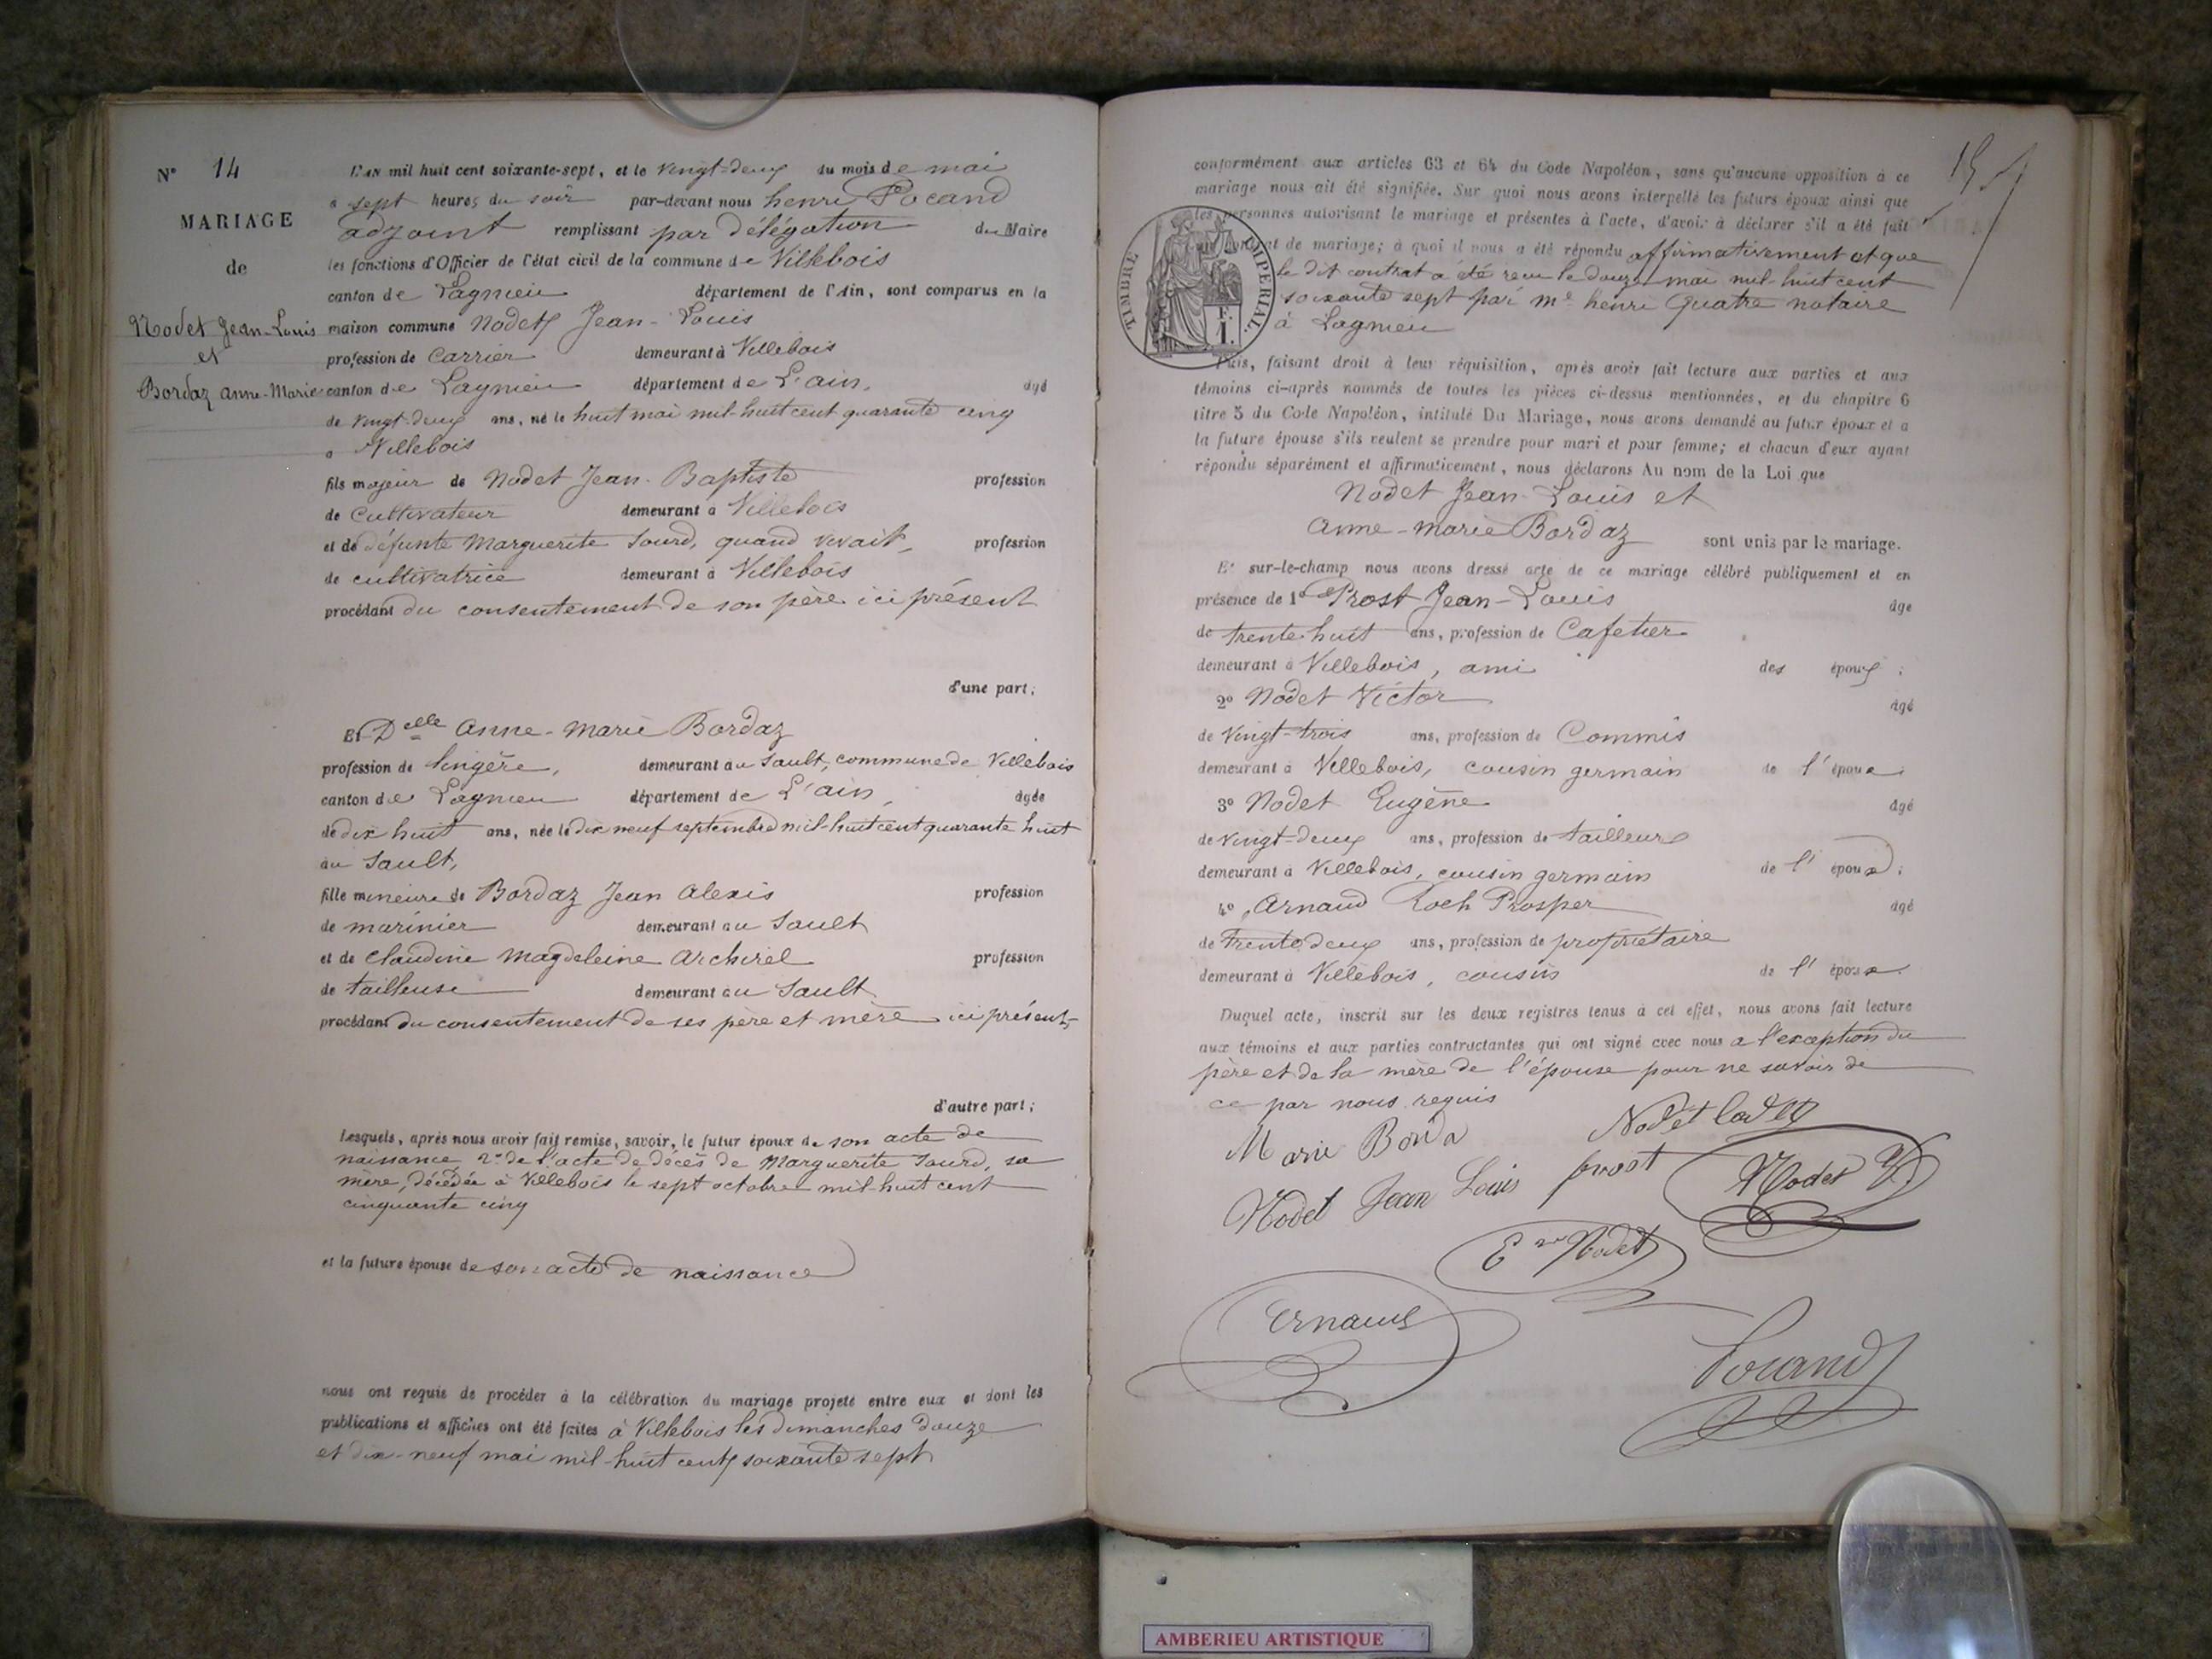 N° 14
MARIAGE
de
Nodet Jean-Louis
et
Bordaz Anne-Marie
L'AN mil huit cent soixante-sept, et le vingt-deux du mois de mai
à sept heures du soir par-devant nous henri Pocand
adjoint remplissant par délégation du Maire
les fonctions d'Officier de l'état civil de la commune de Villebois
canton de Lagnieu département de l'Ain, sont comparus en la
maison commune Nodet Jean-Louis
profession de Carrier demeurant à Villebois
canton de Lagnieu département de L'ain, agé
de vingt-deux ans, né le huit mai mil-huit cent quarante cinq
à Villebois
fils majeur de Nodet Jean-Baptiste profession
de Cultivateur demeurant à Villebois
et de défunte Marguerite Sourd, quand vivait, profession
de cultivatrice demeurant à Villebois
procédant du consentement de son père ici présent
d'une part;
Et Delle Anne-Marie Bordaz
profession de lingère, demeurant au Sault, commune de Villebois
canton de Lagnieu département de L'ain, agée
de dix huit ans, née le dix neuf septembre mil-huit cent quarante huit
au Sault,
fille mineure de Bordaz Jean Alexis profession
de marinier demeurant au Sault
et de Claudine Magdeleine Archirel profession
de tailleuse demeurant au Sault
procédant du consentement de ses père et mère ici présents
d'autre part;
Lesquels, après nous avoir fait remise, savoir, le futur époux de son acte de
naissance 2° de l'acte de décès de Marguerite Sourd, sa
mère, décédée à Villebois le sept octobre mil-huit cent
cinquante cinq
et la future épouse de son acte de naissance
nous ont requis de procéder à la célébration du mariage projeté entre eux et dont les
publications et affiches ont été faites à Villebois les dimanches douze
et dix-neuf mai mil-huit cent soixante sept
15
conformément aux articles 63 et 64 du Code Napoléon, sans qu'aucune opposition à ce
mariage nous ait été signifiée. Sur quoi nous avons interpellé les futurs époux ainsi que
les personnes autorisant le mariage et présentes à l'acte, d'avoir à déclarer s'il a été fait
un contrat de mariage; à quoi il nous a été répondu affirmativement et que
le dit contrat a été reçu le douze mai mil-huit cent
soixante sept par Me henri Quatre notaire
à Lagnieu
TIMBRE IMPERIAL.
F.
1.
Puis, faisant droit à leur réquisition, après avoir fait lecture aux parties et aux
témoins ci-après nommés de toutes les pièces ci-dessus mentionnées, et du chapitre 6
titre 5 du Code Napoléon, intitulé Du Mariage, nous avons demandé au futur époux et à
la future épouse s'ils veulent se prendre pour mari et pour femme; et chacun d'eux ayant
répondu séparément et affirmativement, nous déclarons Au nom de la Loi que
Nodet Jean-Louis et
Anne-Marie Bordaz sont unis par le mariage.
Et sur-le-champ nous avons dressé acte de ce mariage célébré publiquement et en
présence de 1° Prost Jean-Louis âgé
de trente huit ans, profession de Cafetier
demeurant à Villebois, ami des époux;
2° Nodet Victor âgé
de vingt-trois ans, profession de Commis
demeurant à Villebois, cousin germain de l'époux
3° Nodet Eugène âgé
de vingt-deux ans, profession de tailleur
demeurant à Villebois, cousin germain de l'époux;
4° Arnaud Roch Prosper âgé
de trente deux ans, profession de propriétaire
demeurant à Villebois, cousin de l'époux
Duquel acte, inscrit sur les deux registres tenus à cet effet, nous avons fait lecture
aux témoins et aux parties contractantes qui ont signé avec nous à l'exception du
père et de la mère de l'épouse pour ne savoir de
ce par nous requis
Marie Borda Nodet
Nodet Jean Louis prost Nodet V
Ene Nodet
Ernaud
Pocand
AMBERIEU ARTISTIQUE